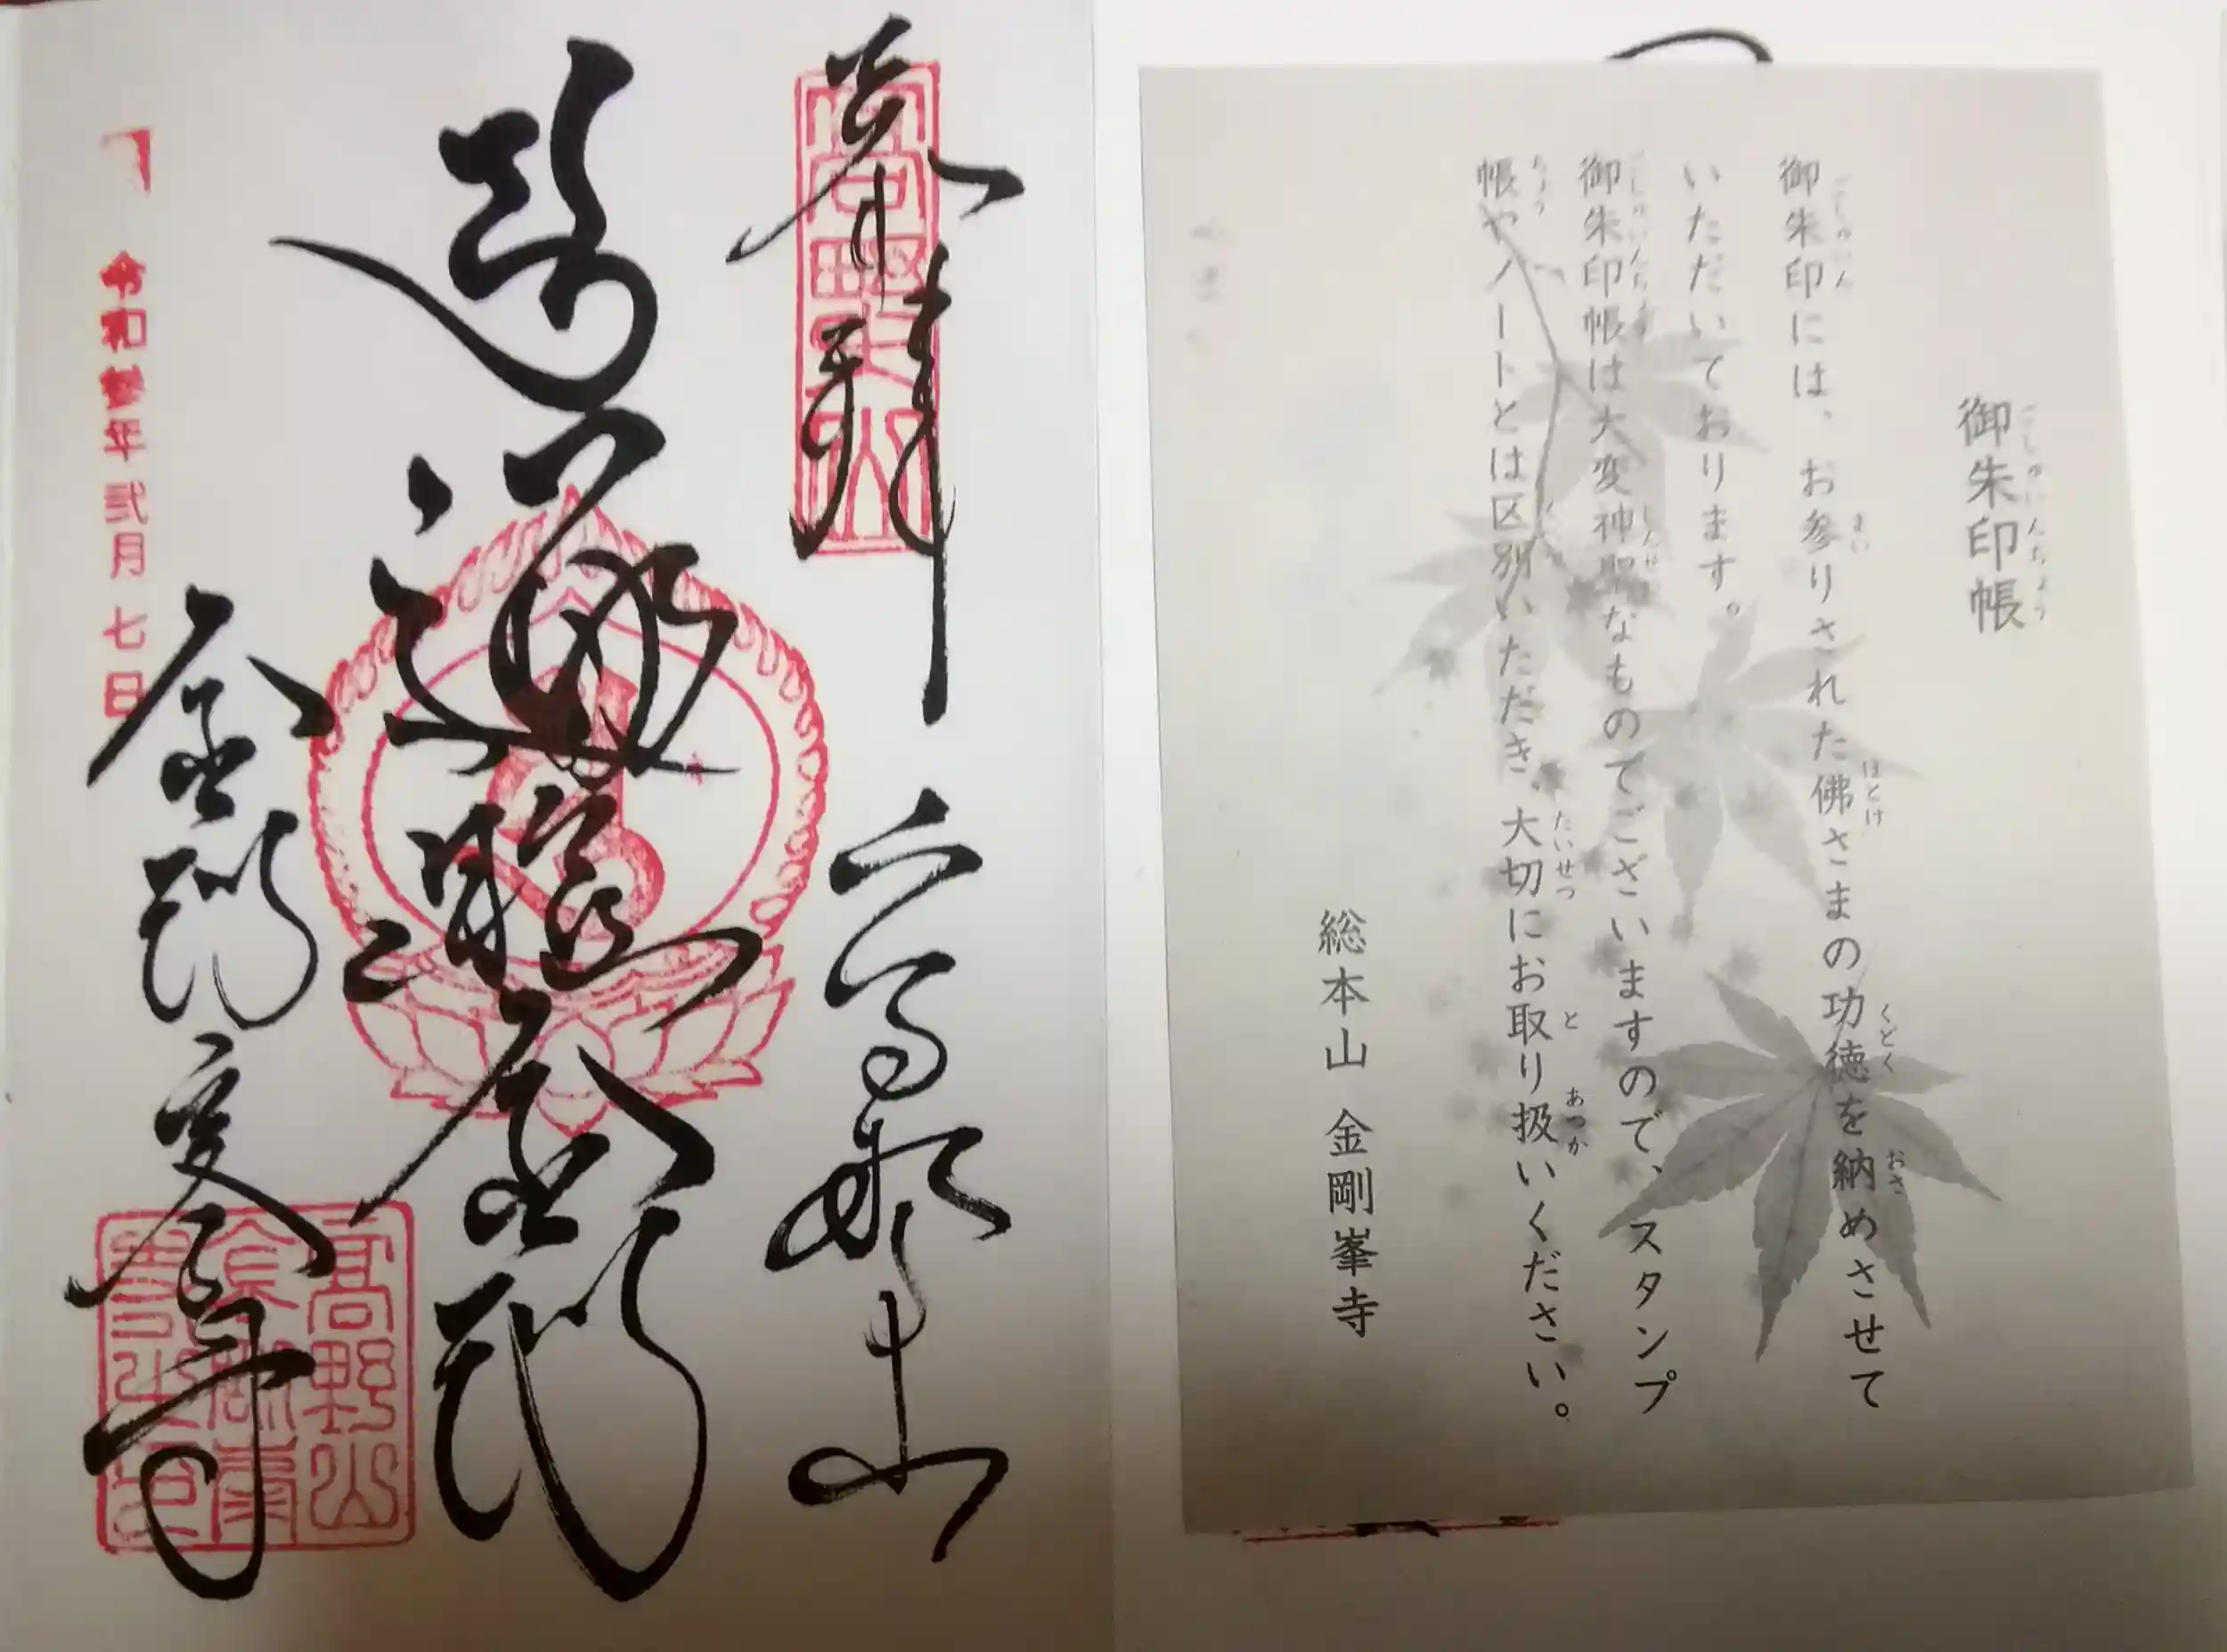 御朱印帳
御朱印には、お参りされた佛さまの功徳を納めさせて
いただいております。
御朱印帳は大変神聖なものでございますので、スタンプ
帳やノートとは区別いただき、大切にお取り扱いください。
総本山 金剛峯寺
奉拝
高野山
遍照金剛
令和參年弐月七日
金剛峯寺